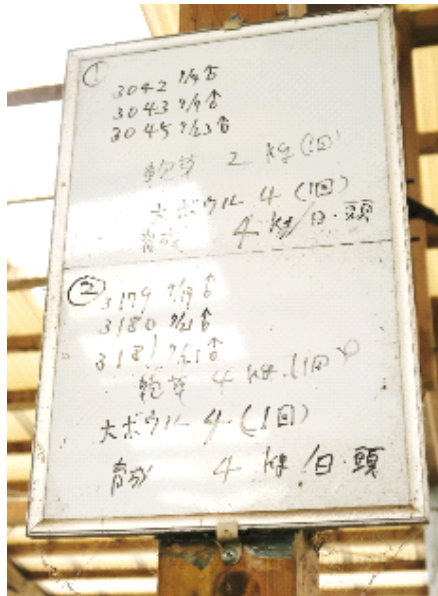 ①
3042 9/9 ♂
3043 9/9 ♂
3045 9/23 ♂
乾草 2 kg (1回)
大ボウル 4 (1回)
育成 4 kg/日・頭
②
3179 9/19 ♂
3180 9/21 ♂
3181 9/21 ♂
乾草 4 kg (1回)
大ボウル 4 (1回)
育成 4 kg /日・頭